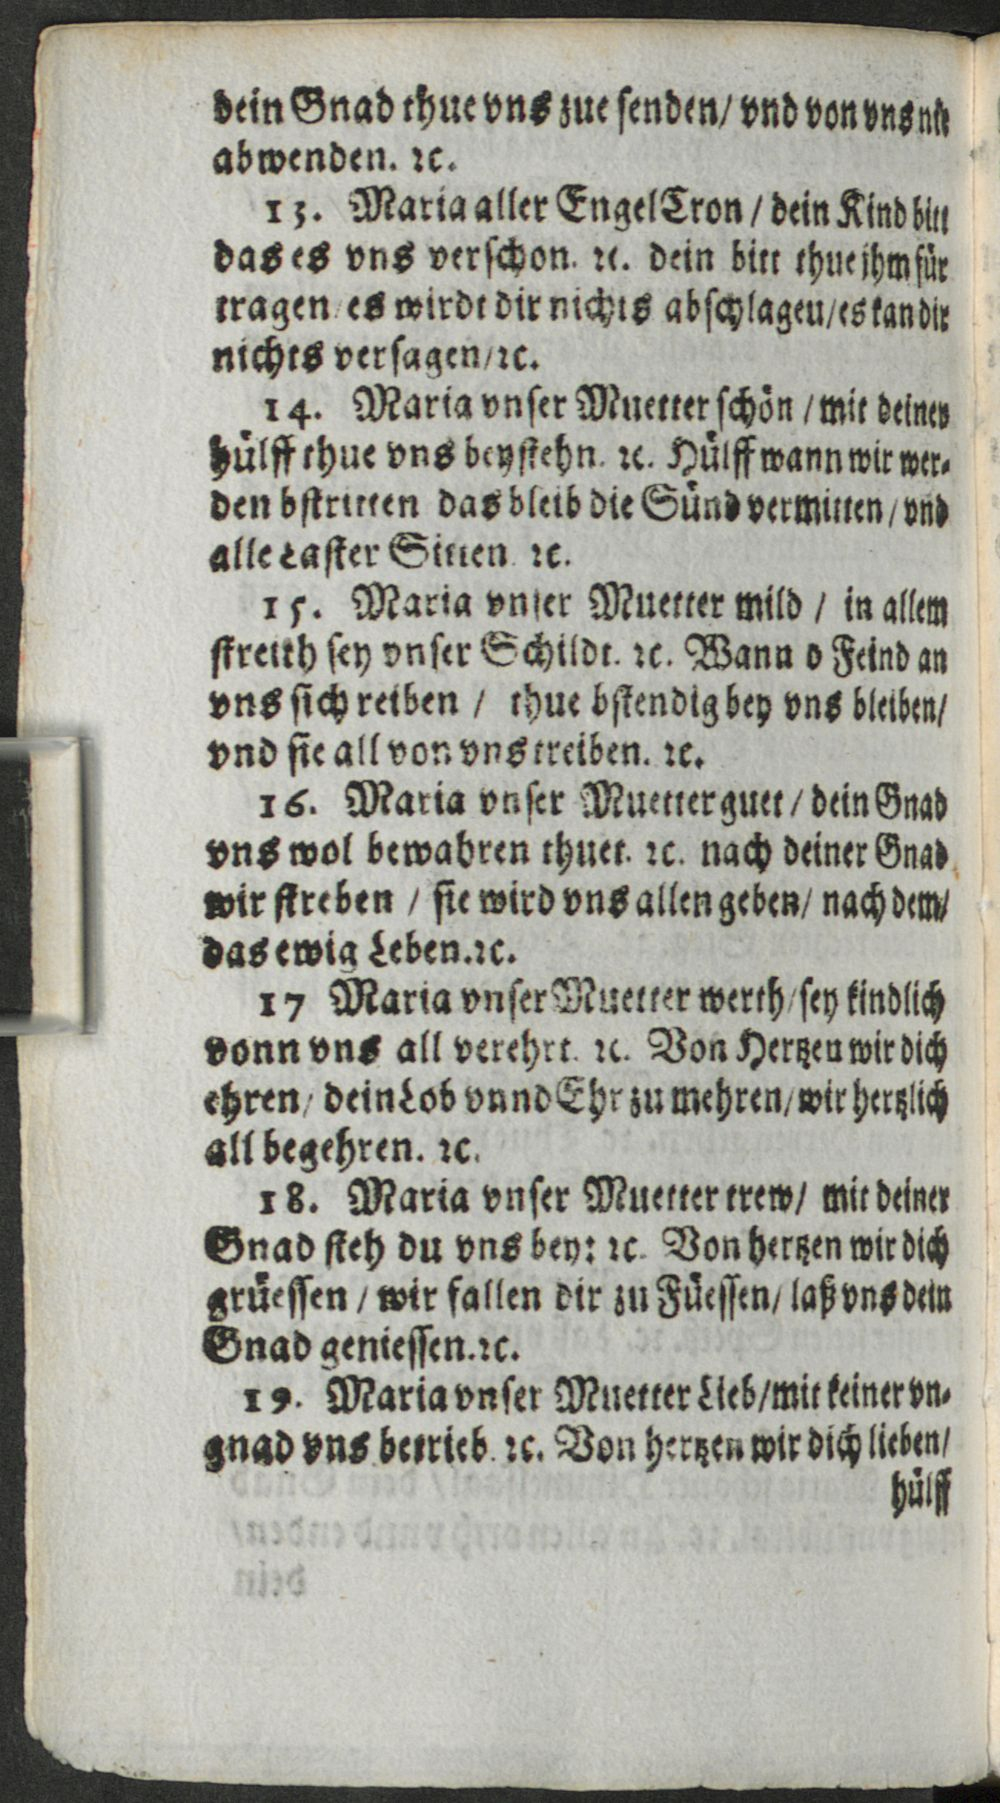 dein Gnad thue vns zue senden/ vnd von vns nit
abwenden. ꝛc.
13. Maria aller Engel Tron / dein Kind bitt
das es vns verschon. ꝛc. dein bitt thue jhm für
tragen/ es wirdt dir nichts abschlageu/ es kan dir
nichts versagen/ ꝛc.
14. Maria vnser Muetter schön / mit deiner
hülff thue vns beystehn. ꝛc. Hülff wann wir wer-
den bstritten das bleib die Sünd vermitten / vnd
alle Laster Sitten. ꝛc.
15. Maria vnser Muetter mild / in allem
streith sey vnser Schildt. ꝛc. Wann d Feind an
vns sich reiben / thue bstendig bey vns bleiben/
vnd sie all von vns treiben. ꝛc.
16. Maria vnser Muetter guet / dein Gnad
vns wol bewahren thuet. ꝛc. nach deiner Gnad
wir streben / sie wird vns allen geben/ nach dem/
das ewig Leben. ꝛc.
17 Maria vnser Muetter werth/ sey kindlich
vonn vns all verehrt. ꝛc. Von Hertzeu wir dich
ehren/ dein Lob vnnd Ehr zu mehren/ wir hertzlich
all begehren. ꝛc.
18. Maria vnser Muetter trew/ mit deiner
Gnad steh du vns bey: ꝛc. Von hertzen wir dich
grüessen / wir fallen dir zu Füessen/ laß vns dein
Gnad geniessen. ꝛc.
19. Maria vnser Muetter Lieb/ mit keiner vn-
gnad vns betrieb. ꝛc. Von hertzen wir dich lieben/
hülff